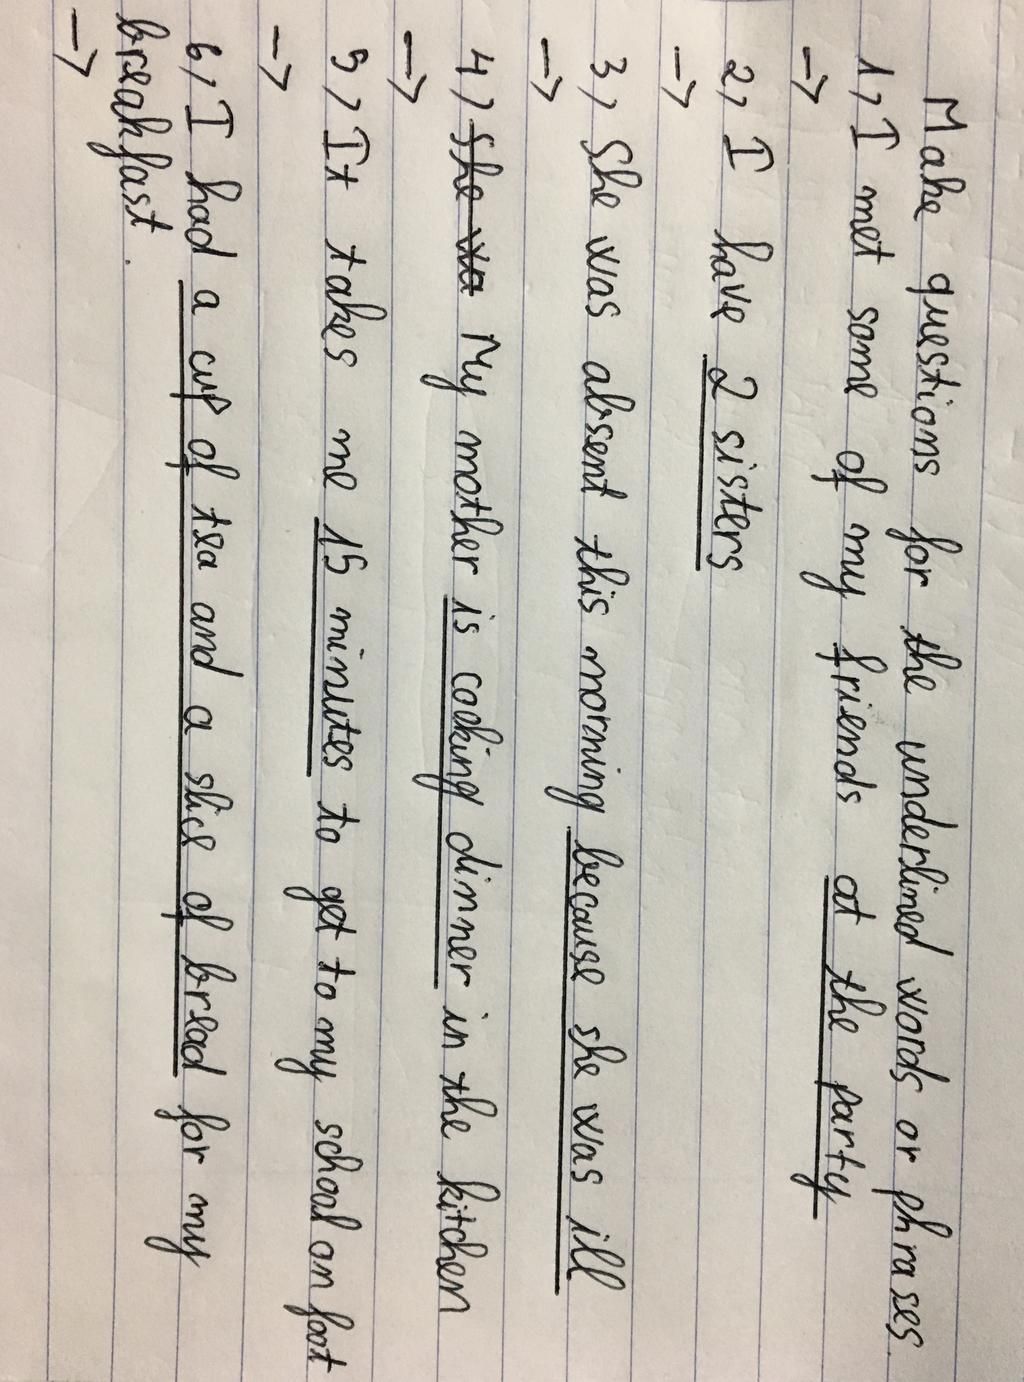 Make questions for the underlined words or phrases.
1, I met some of my friends at the party
→
2, I have 2 sisters
→
3, She was absent this morning because she was ill
→
4, She wa My mother is cooking dinner in the kitchen
→
5, It takes me 15 minutes to get to my school on foot
→
6, I had a cup of tea and a slice of bread for my
breakfast.
→